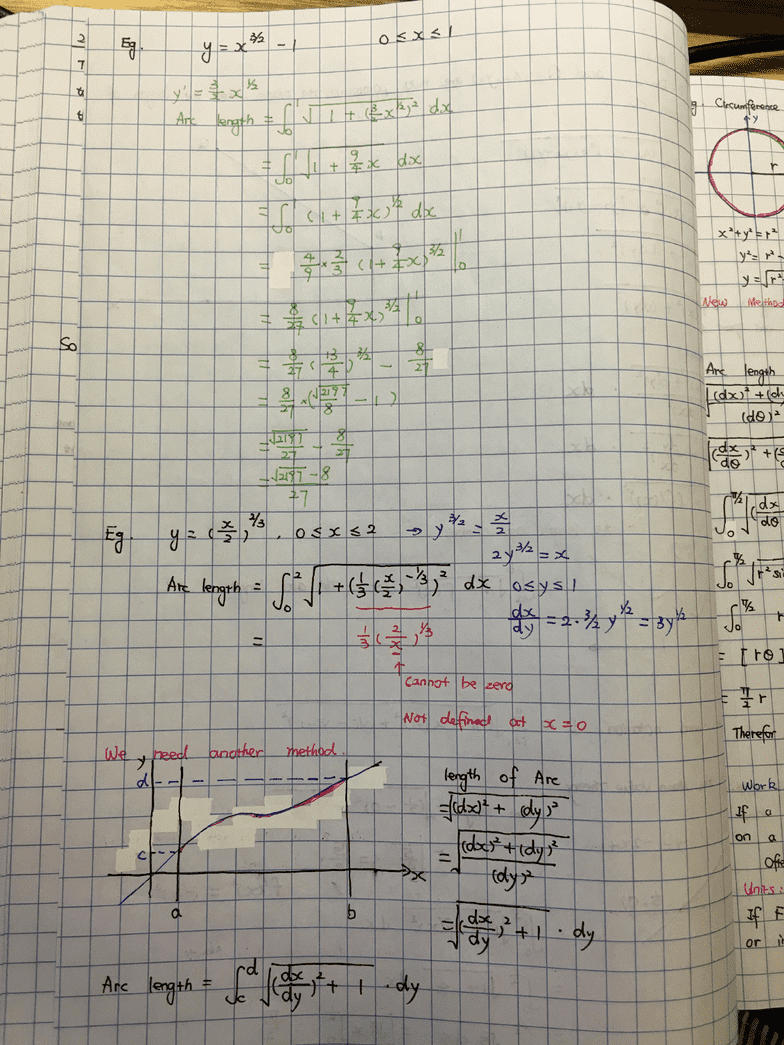 Eg. y = x^(3/2) - 1 0 ≤ x ≤ 1
y' = 3/2 x^(1/2)
Arc length = ∫₀¹ √(1 + (3/2 x^(1/2))²) dx
= ∫₀¹ √(1 + 9/4 x) dx
= ∫₀¹ (1 + 9/4 x)^(1/2) dx
= 4/9 × 2/3 (1 + 9/4 x)^(3/2) |₀¹
= 8/27 (1 + 9/4 x)^(3/2) |₀¹
So
= 8/27 (13/4)^(3/2) - 8/27
= 8/27 × (√2197/8 - 1)
= √2197/27 - 8/27
= (√2197 - 8)/27
Eg. y = (x/2)^(2/3) . 0 ≤ x ≤ 2 → y^(3/2) = x/2
2y^(3/2) = x
Arc length = ∫₀² √(1 + (1/3 (x/2)^(-1/3))²) dx 0 ≤ y ≤ 1
= 1/3 (2/x)^(1/3) dx/dy = 2 · 3/2 y^(1/2) = 3y^(1/2)
↑
Cannot be zero
Not defined at x = 0
We need another method.
y
d
c
x
a b
length of Arc
= √((dx)² + (dy)²)
= √(((dx)² + (dy)²)/(dy)²)
= √((dx/dy)² + 1) · dy
Arc length = ∫_c^d √((dx/dy)² + 1) · dy
Circumference
y
r
x² + y² = r²
y² = r² -
y = √r²
New Method
Arc length
(dx)² + (dy
(dθ)²
(dx/dθ)² + (
∫₀^(π/2) √(dx/dθ
∫₀^(π/2) √r² si
∫₀^(π/2) r
= [rθ]
= π/2 r
Therefor
Work
If a
on a
Ofte
Units:
If F
or i